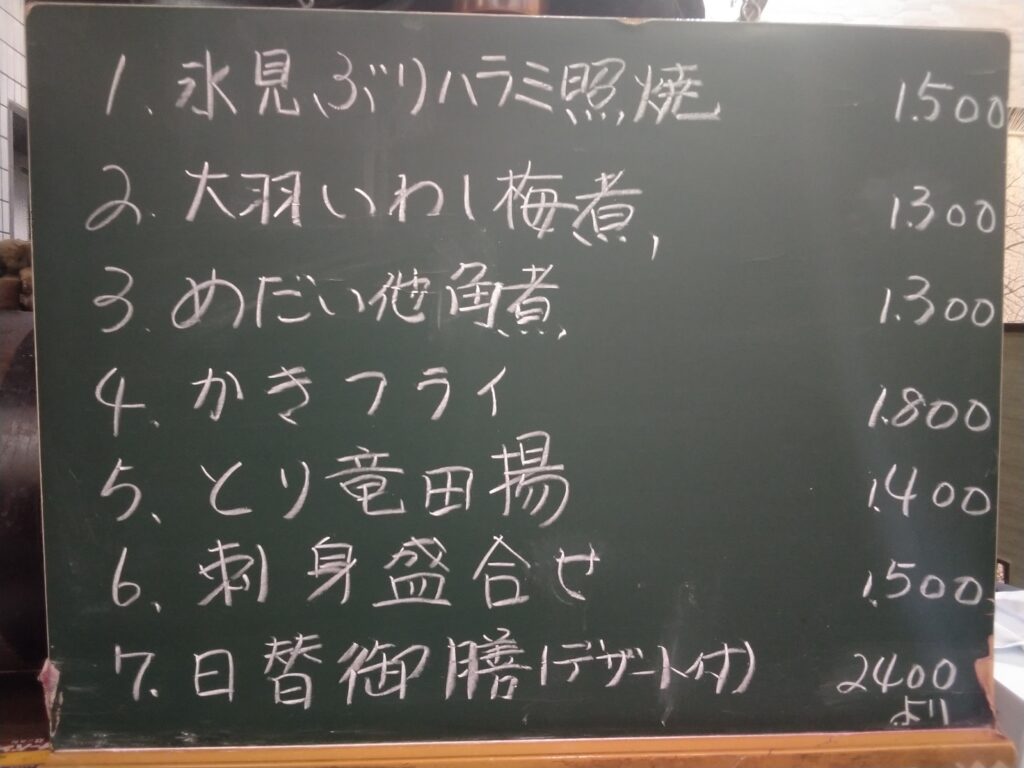 1. 氷見ぶりハラミ照焼 1.500
2. 大羽いわし梅煮 1.300
3. めだい他角煮 1.300
4. かきフライ 1.800
5、とり竜田揚 1.400
6、刺身盛合せ 1.500
7. 日替御膳(デザート付) 2400
より